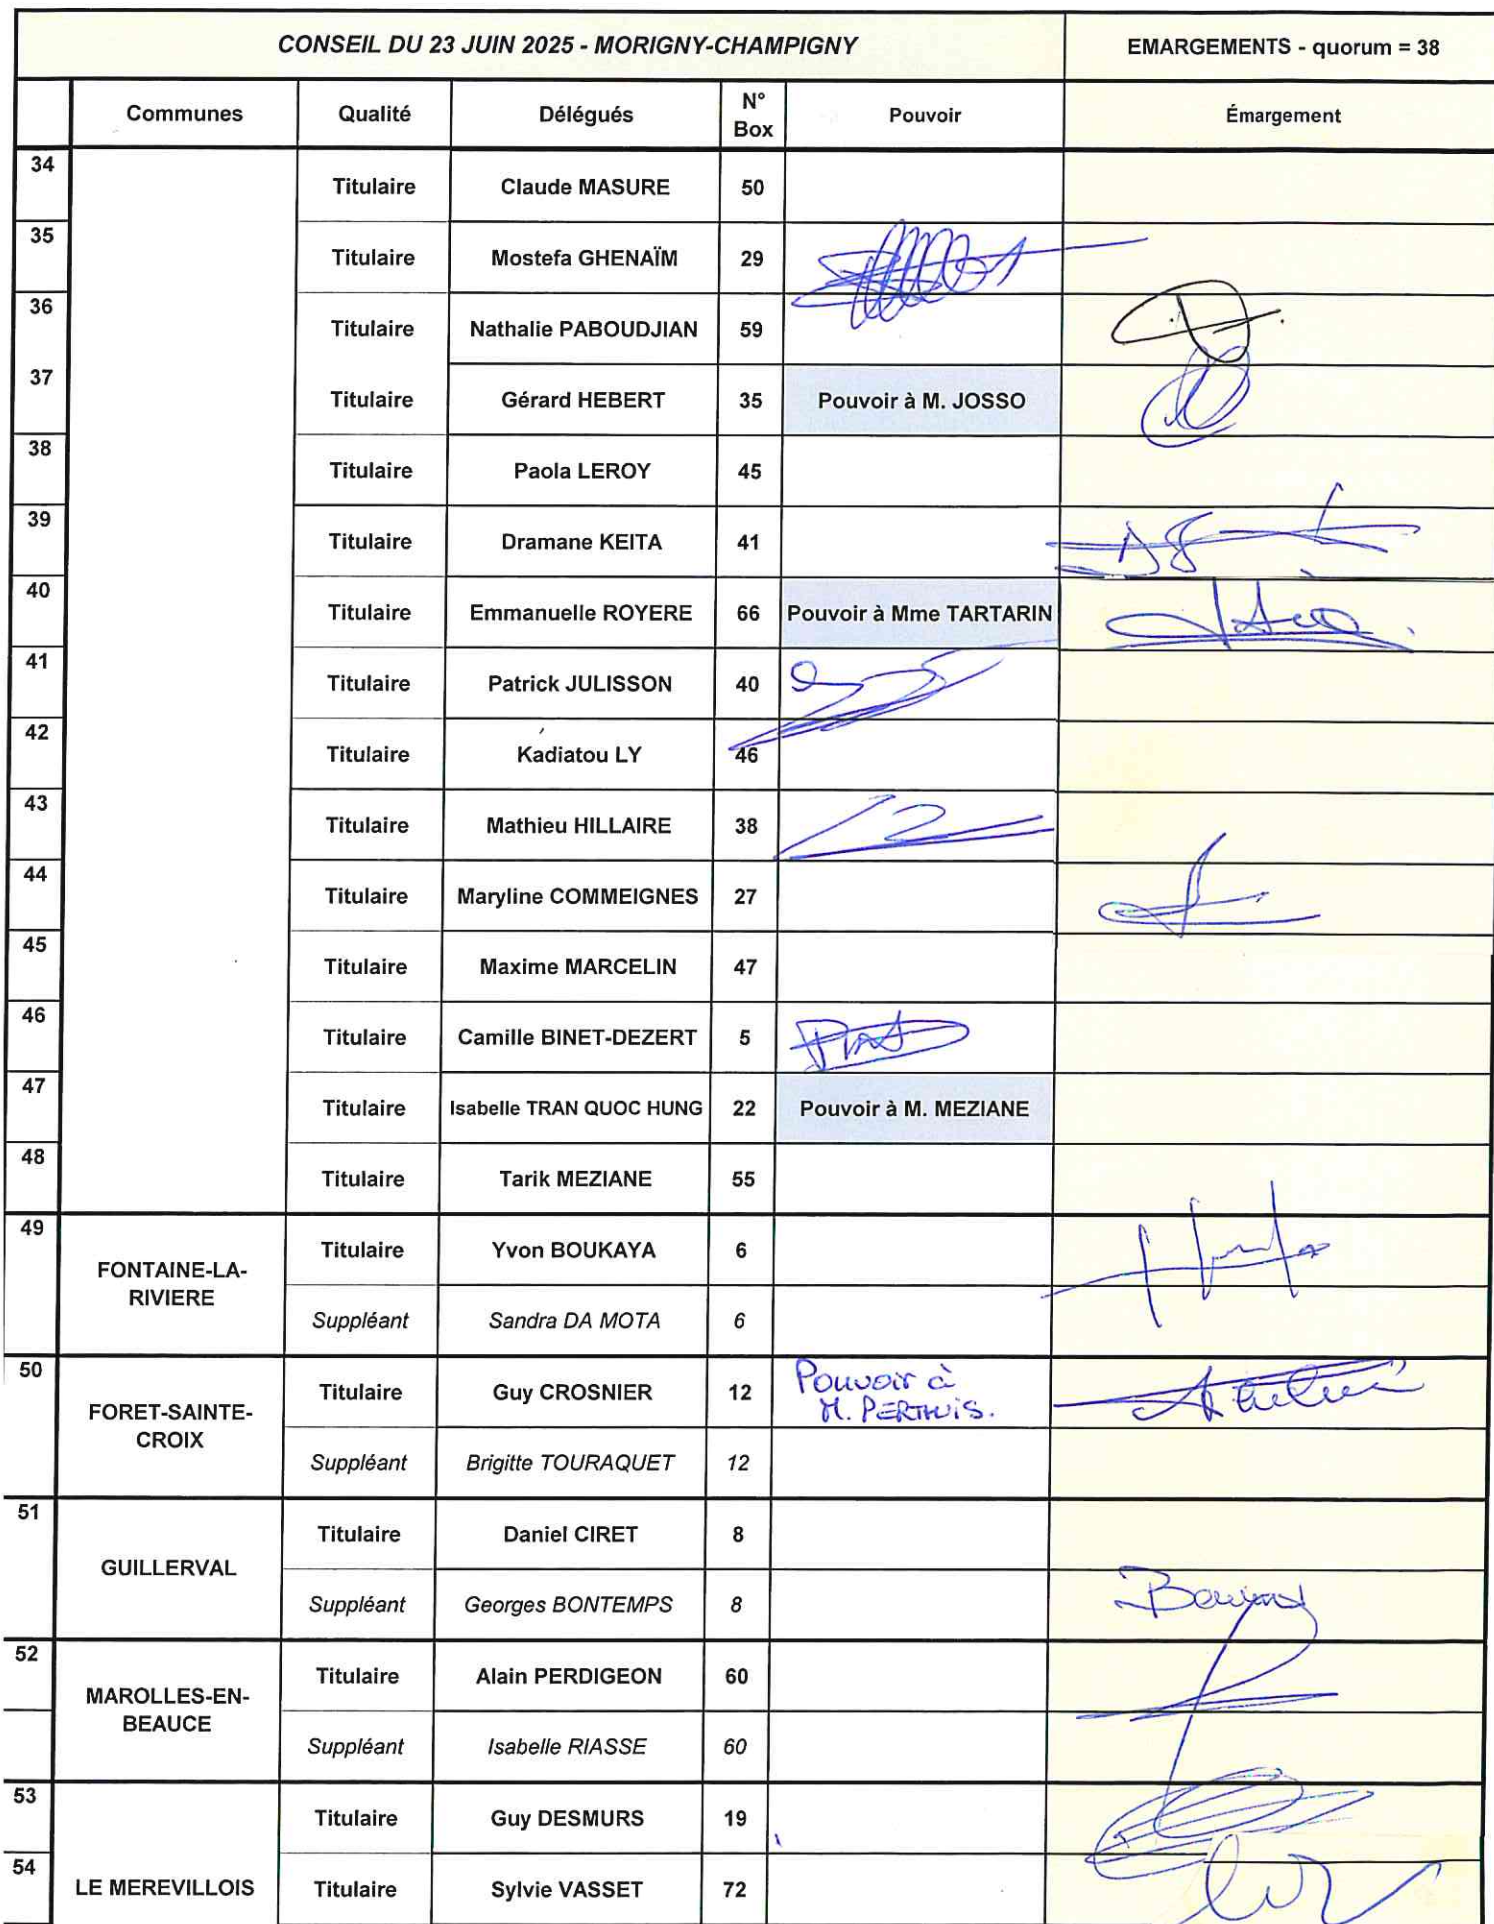 CONSEIL DU 23 JUIN 2025 - MORIGNY-CHAMPIGNY EMARGEMENTS - quorum = 38
Communes Qualité Délégués N° Box Pouvoir Émargement
34 Titulaire Claude MASURE 50
35 Titulaire Mostefa GHENAÏM 29
36 Titulaire Nathalie PABOUDJIAN 59
37 Titulaire Gérard HEBERT 35 Pouvoir à M. JOSSO
38 Titulaire Paola LEROY 45
39 Titulaire Dramane KEITA 41
40 Titulaire Emmanuelle ROYERE 66 Pouvoir à Mme TARTARIN
41 Titulaire Patrick JULISSON 40
42 Titulaire Kadiatou LY 46
43 Titulaire Mathieu HILLAIRE 38
44 Titulaire Maryline COMMEIGNES 27
45 Titulaire Maxime MARCELIN 47
46 Titulaire Camille BINET-DEZERT 5
47 Titulaire Isabelle TRAN QUOC HUNG 22 Pouvoir à M. MEZIANE
48 Titulaire Tarik MEZIANE 55
49 FONTAINE-LA-
RIVIERE
Titulaire Yvon BOUKAYA 6
Suppléant Sandra DA MOTA 6
50 FORET-SAINTE-
CROIX
Titulaire Guy CROSNIER 12 Pouvoir à
M. PERTHUIS.
Suppléant Brigitte TOURAQUET 12
51 GUILLERVAL
Titulaire Daniel CIRET 8
Suppléant Georges BONTEMPS 8
52 MAROLLES-EN-
BEAUCE
Titulaire Alain PERDIGEON 60
Suppléant Isabelle RIASSE 60
53 Titulaire Guy DESMURS 19
54 LE MEREVILLOIS Titulaire Sylvie VASSET 72